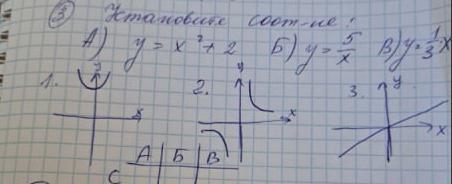 ⑤ Установите соот-ие!
А) y = x² + 2 Б) y = 5/x В) y = 1/3 x
1. y x 2. y x 3. y x
А Б В
С